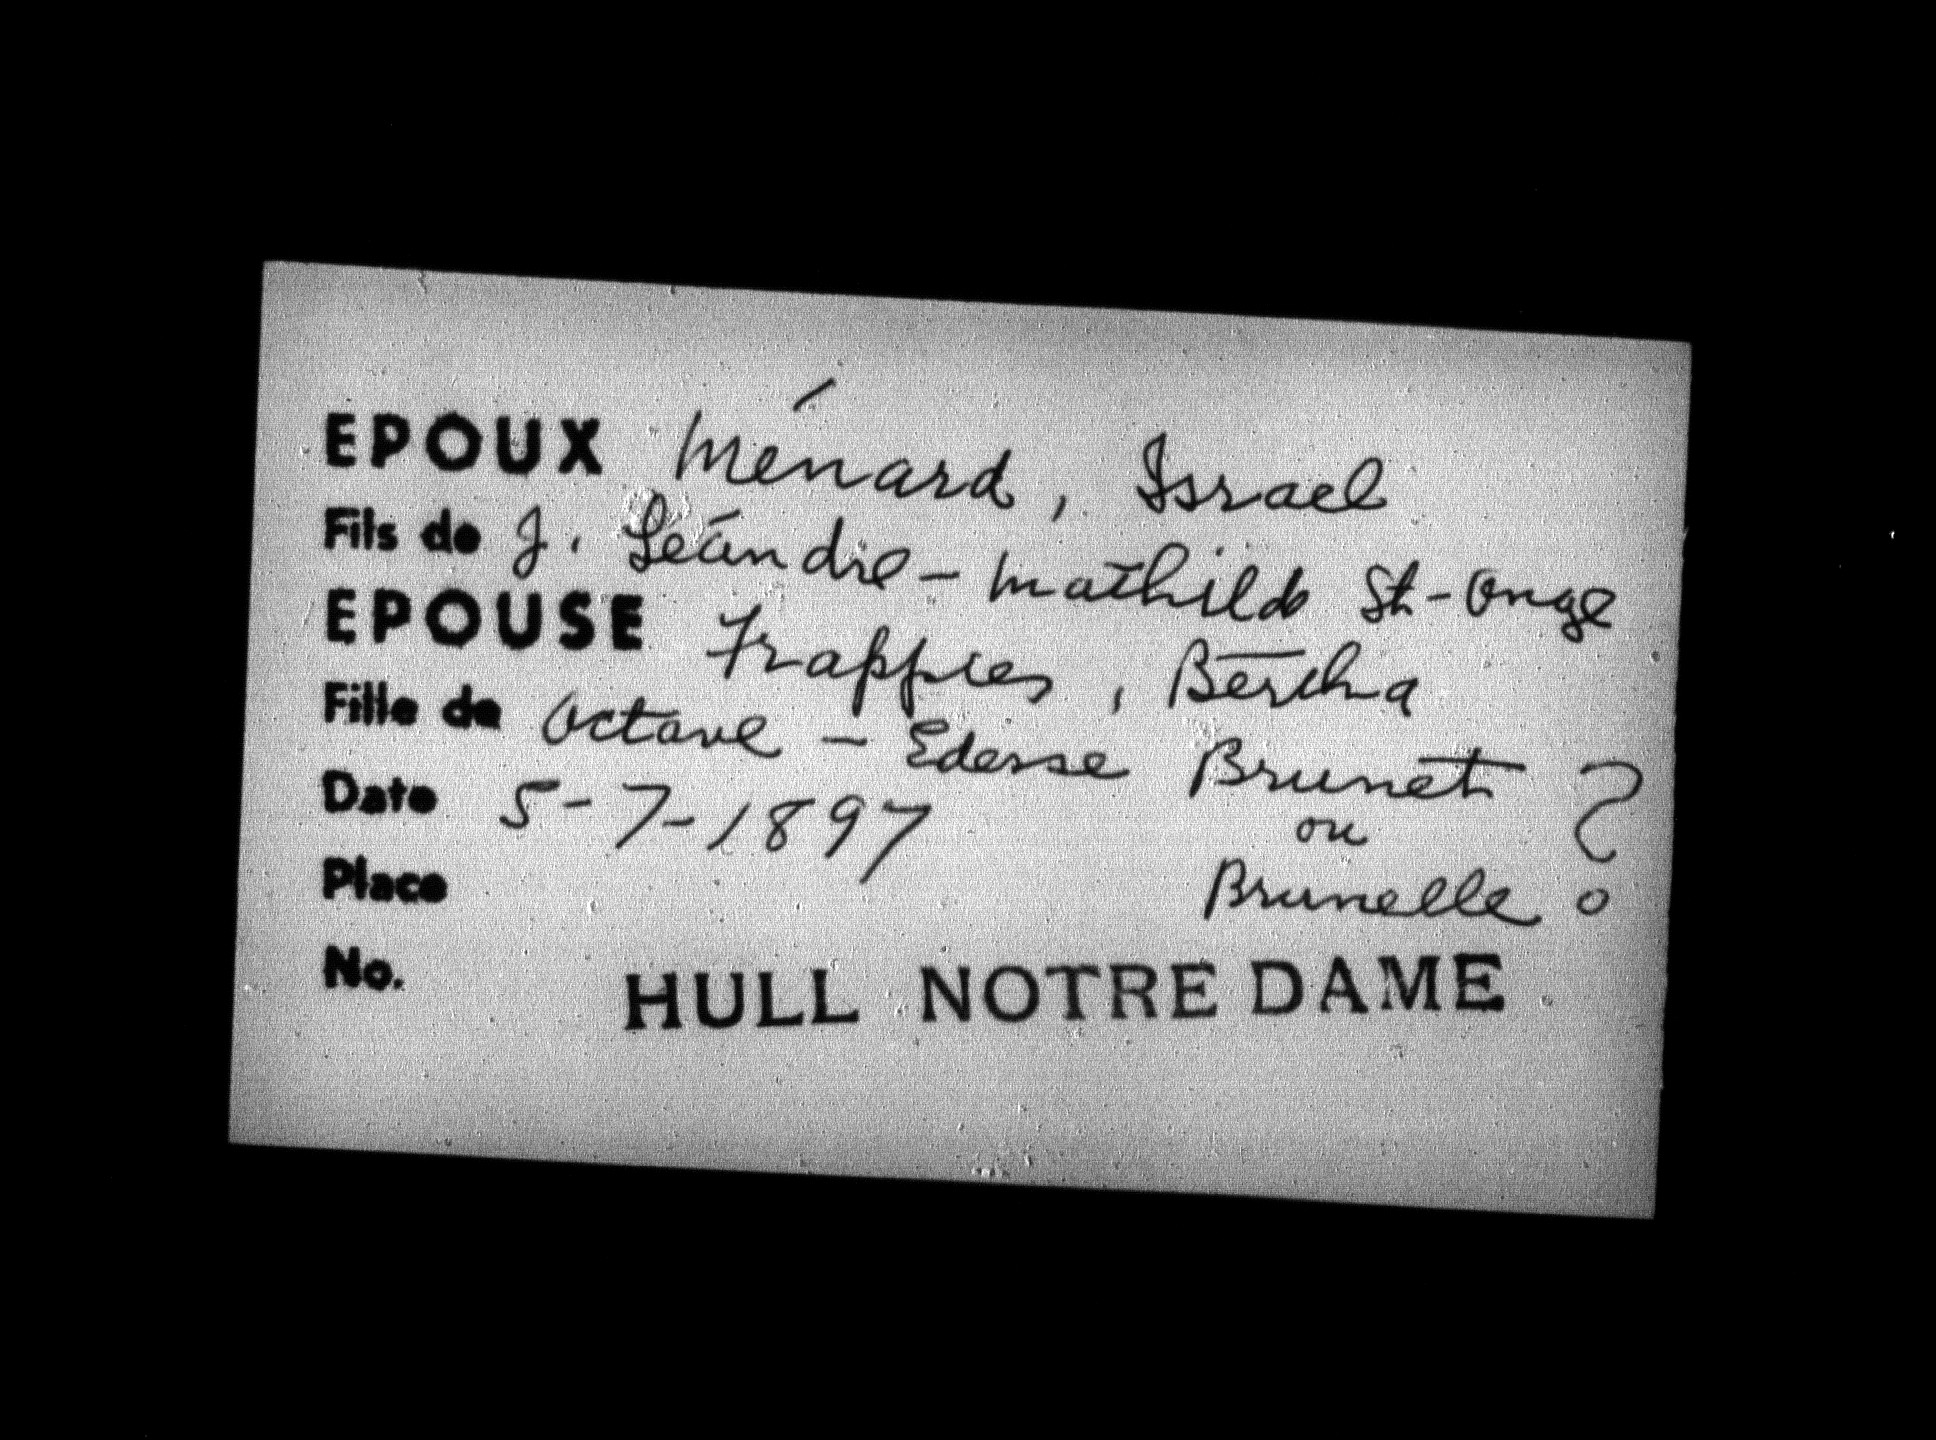 EPOUX Ménard, Israel
Fils de J. Léandre - Mathilde St-Onge
EPOUSE Frappies, Bertha
Fille de Octave - Edesse Brunet ?
ou
Date 5-7-1897
Brunelle
Place
No. HULL NOTRE DAME